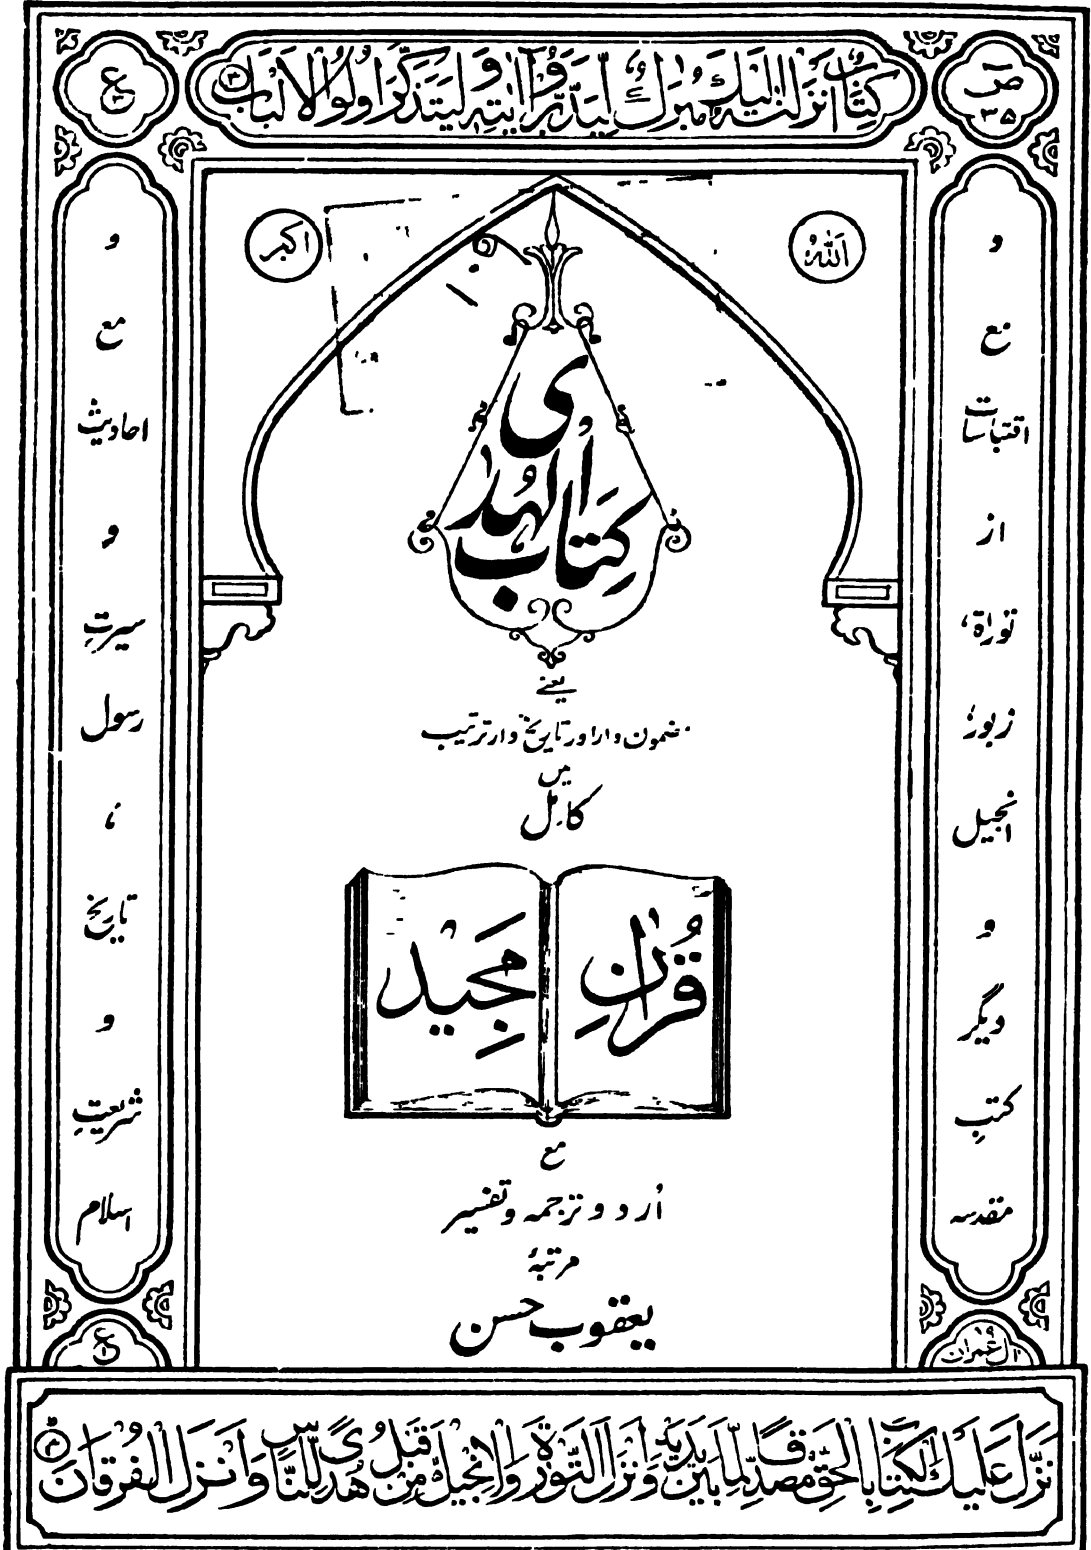 ص ۳۵
كِتٰبٌ اَنْزَلْنٰهُ اِلَيْكَ مُبٰرَكٌ لِّيَدَّبَّرُوْٓا اٰيٰتِهٖ وَلِيَتَذَكَّرَ اُولُوا الْاَلْبَابِ
ع ۳
اللّٰهُ
اکبر
کِتابُ
الہُدٰ
ی
یعنے
مضمون وار اور تاریخ وار ترتیب
میں
کامِل
قُرآنِ مَجید
مع
اُردو ترجمہ و تفسیر
مرتبۂ
یعقوب حسن
و
مع
اقتباسات
از
تورٰۃ،
زبور،
انجیل
و
دیگر
کتبِ
مقدسہ
و
مع
احادیث
و
سیرتِ
رسول
،
تاریخ
و
شریعتِ
اسلام
اٰل عمران
ع ۱
نَزَّلَ عَلَيْكَ الْكِتٰبَ بِالْحَقِّ مُصَدِّقًا لِّمَا بَيْنَ يَدَيْهِ وَاَنْزَلَ التَّوْرٰىةَ وَالْاِنْجِيْلَ مِنْ قَبْلُ هُدًى لِّلنَّاسِ وَاَنْزَلَ الْفُرْقَانَ